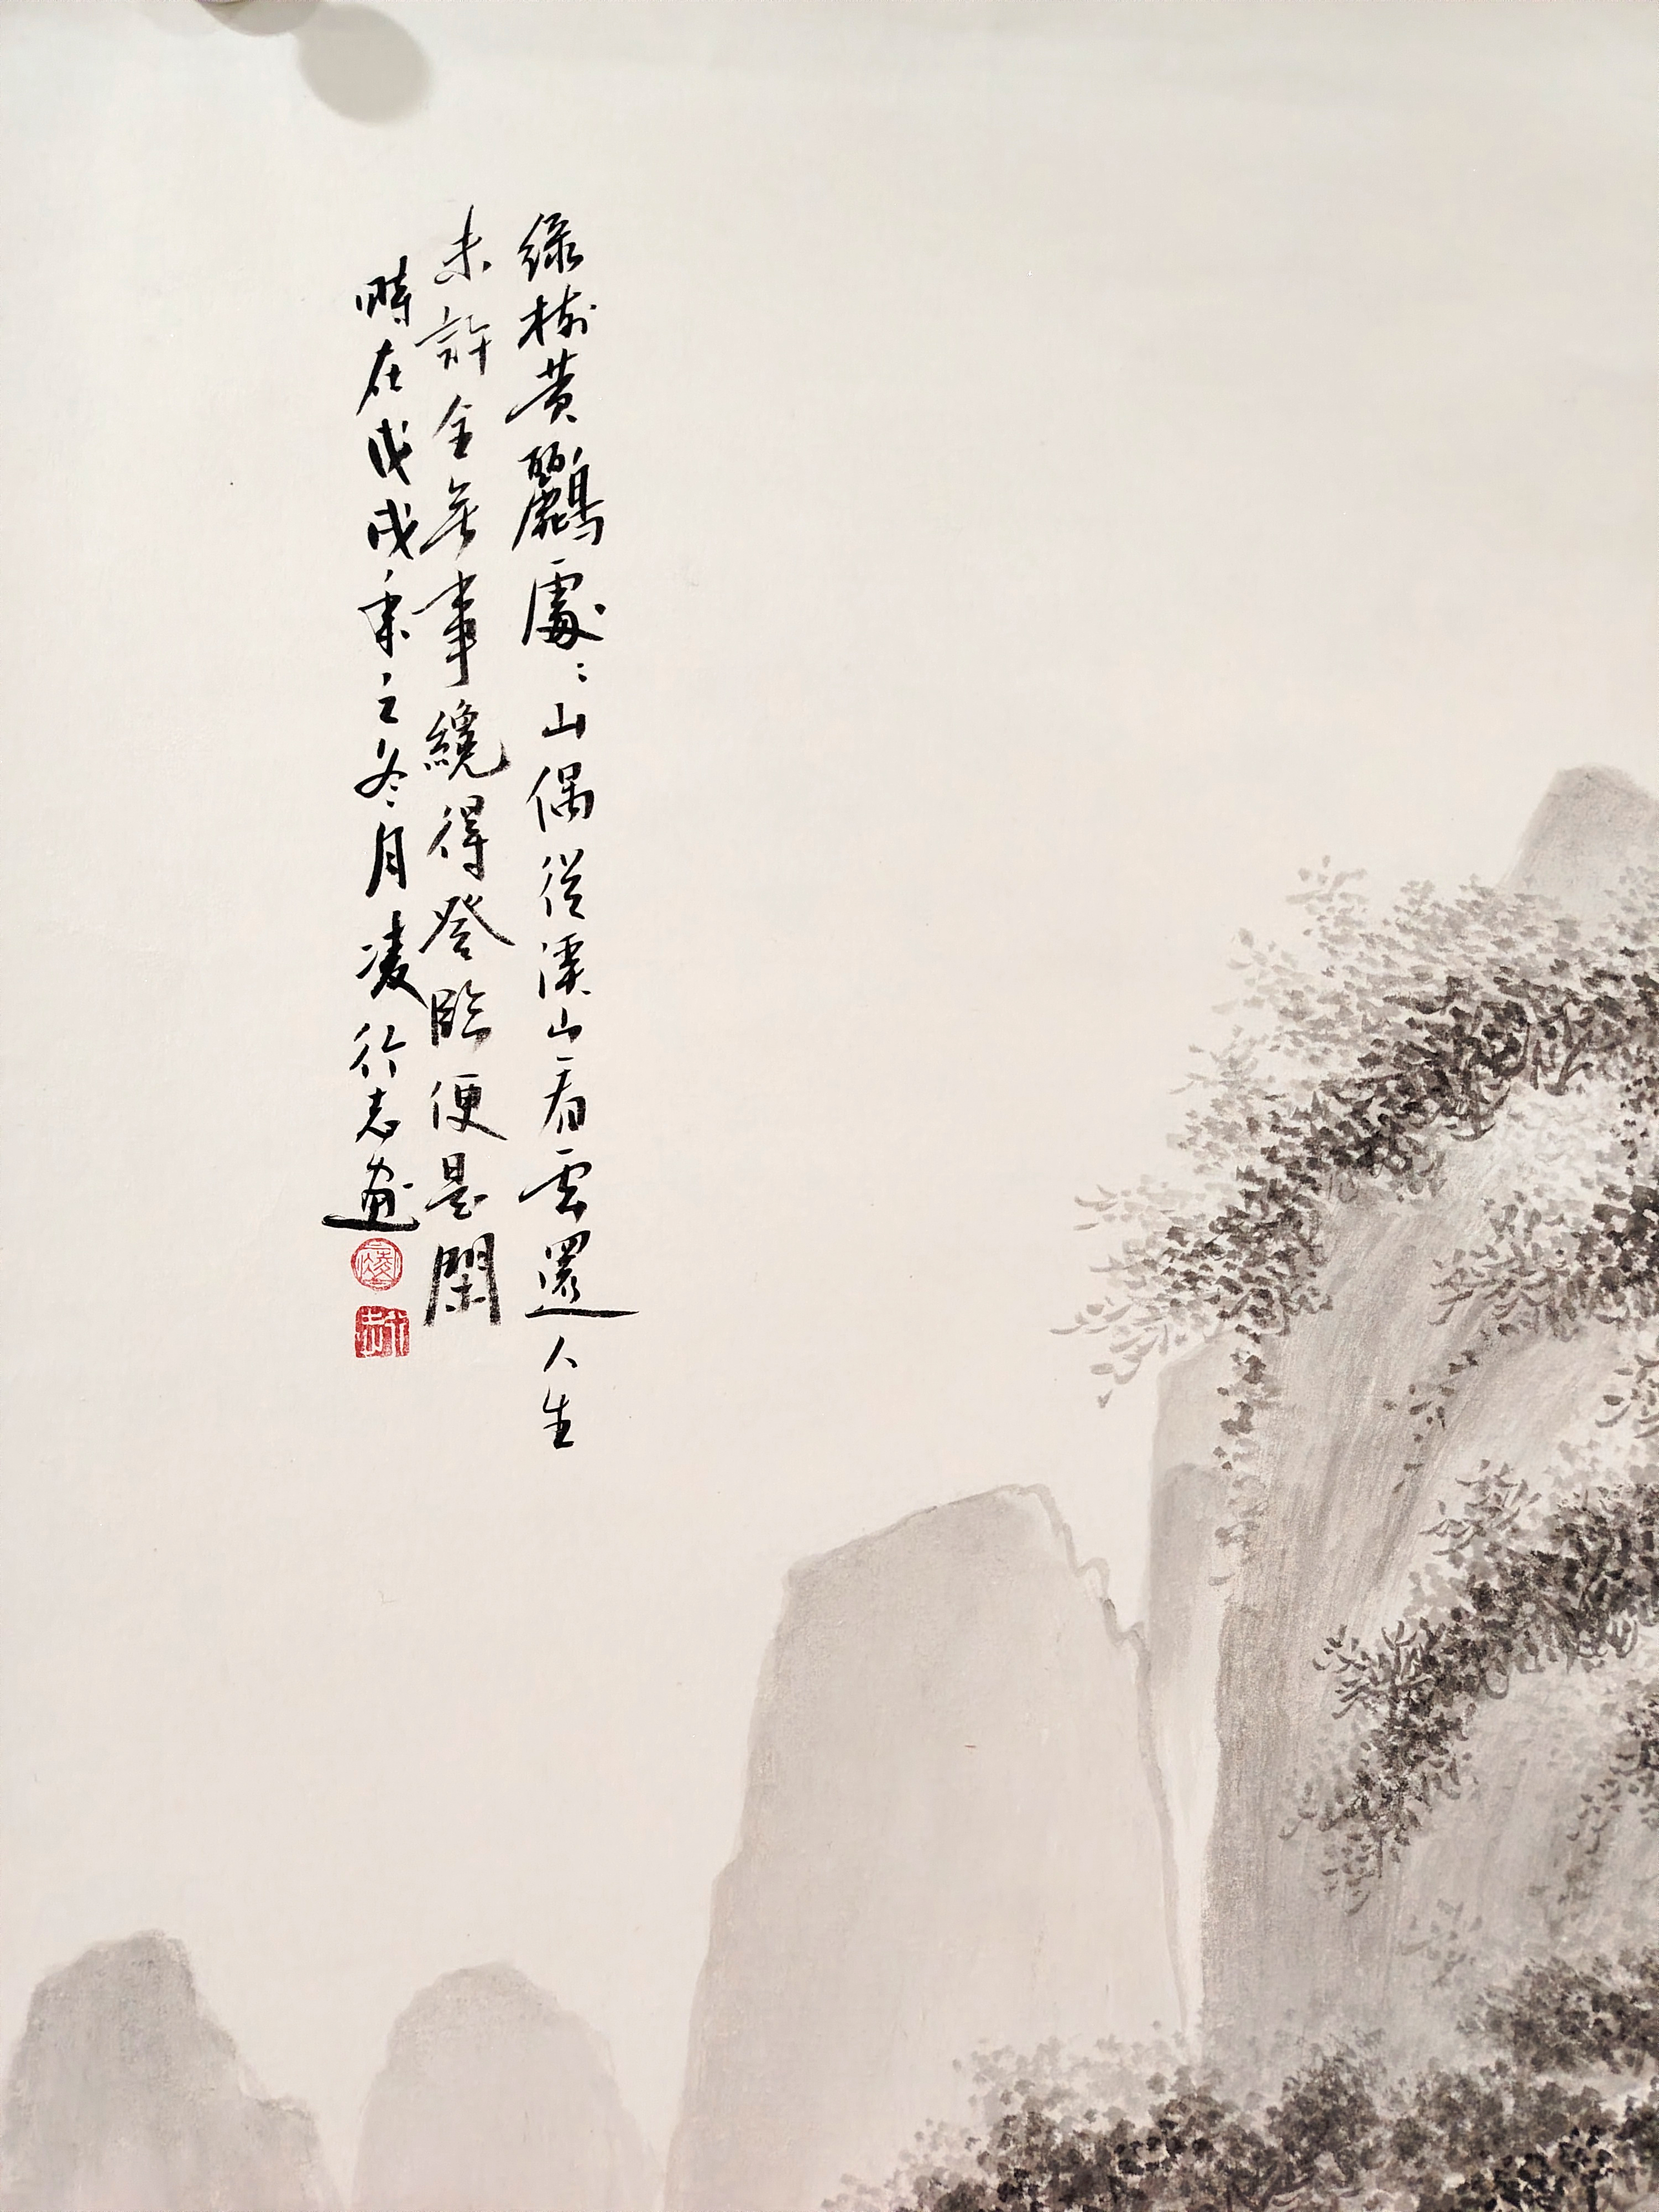 緑樹黄鸝處〻山偶從溪山看雲還人生
未許全無事纔得登臨便是閑
時在戊戌年之冬月凌行志畫